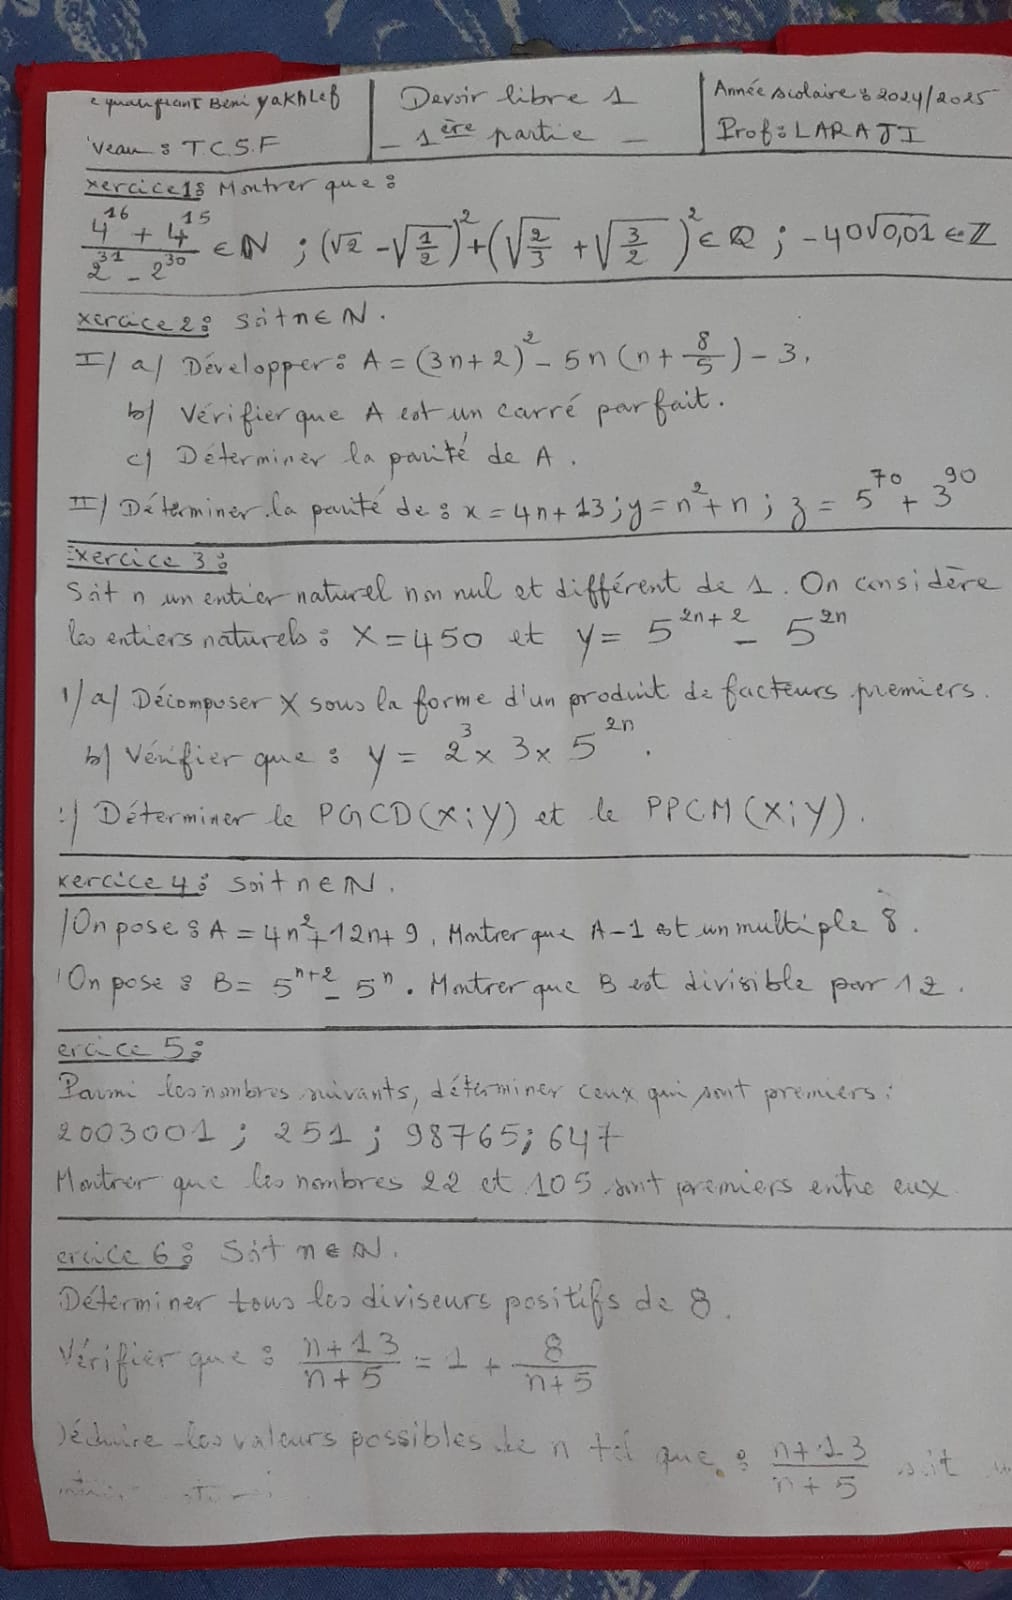 e qualifiant Beni yakhlef
Devoir libre 1
Année scolaire : 2024/2025
veau : T.C.S.F
- 1ère partie -
Prof : LARAJI
xercice 1 : Montrer que :
(4^16 + 4^15)/(2^31 - 2^30) ∈ ℕ ; (√2 - √(1/2))² + (√(2/3) + √(3/2))² ∈ ℚ ; -40√0,01 ∈ ℤ
xercice 2 : Soit n ∈ ℕ.
I/ a/ Développer : A = (3n+2)² - 5n(n + 8/5) - 3.
b/ Vérifier que A est un carré parfait.
c/ Déterminer la parité de A.
II/ Déterminer la parité de : x = 4n+13 ; y = n² + n ; z = 5^70 + 3^90
Exercice 3 :
Soit n un entier naturel non nul et différent de 1. On considère
les entiers naturels : X = 450 et y = 5^(2n+2) - 5^(2n)
1/ a/ Décomposer X sous la forme d'un produit de facteurs premiers.
b/ Vérifier que : y = 2³ × 3 × 5^(2n).
:/ Déterminer le PGCD(X;Y) et le PPCM(X;Y).
xercice 4 : Soit n ∈ ℕ.
/ On pose : A = 4n² + 12n + 9. Montrer que A-1 est un multiple 8.
On pose : B = 5^(n+2) - 5^n. Montrer que B est divisible par 12.
ercice 5 :
Parmi les nombres suivants, déterminer ceux qui sont premiers :
2003001 ; 251 ; 98765 ; 647
Montrer que les nombres 22 et 105 sont premiers entre eux
ercice 6 : Soit n ∈ ℕ.
Déterminer tous les diviseurs positifs de 8.
Vérifier que : (n+13)/(n+5) = 1 + 8/(n+5)
Déduire les valeurs possibles de n tel que : (n+13)/(n+5) soit